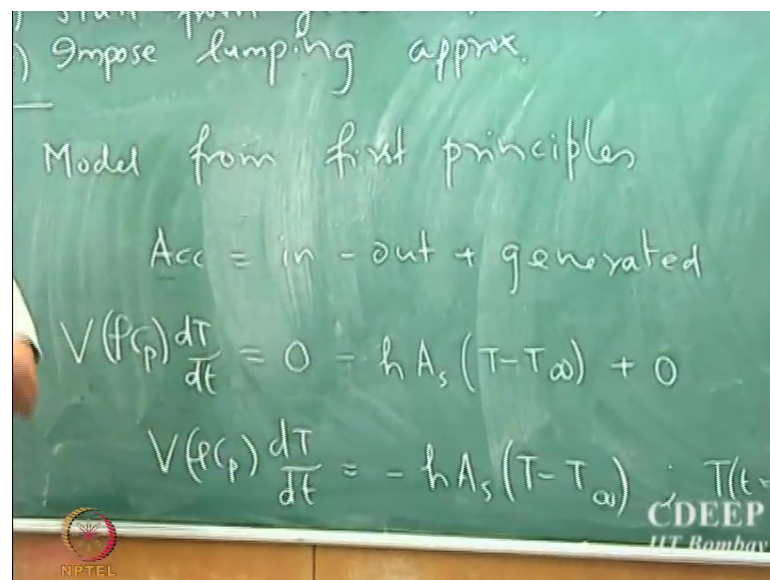 start from
) Impose lumping approx.
Model from first principles
Acc = in - out + generated
V(ρCp) dT/dt = 0 - hAs(T-T∞) + 0
V(ρCp) dT/dt = - hAs(T-T∞) ; T(t=
CDEEP
IIT Bombay
NPTEL